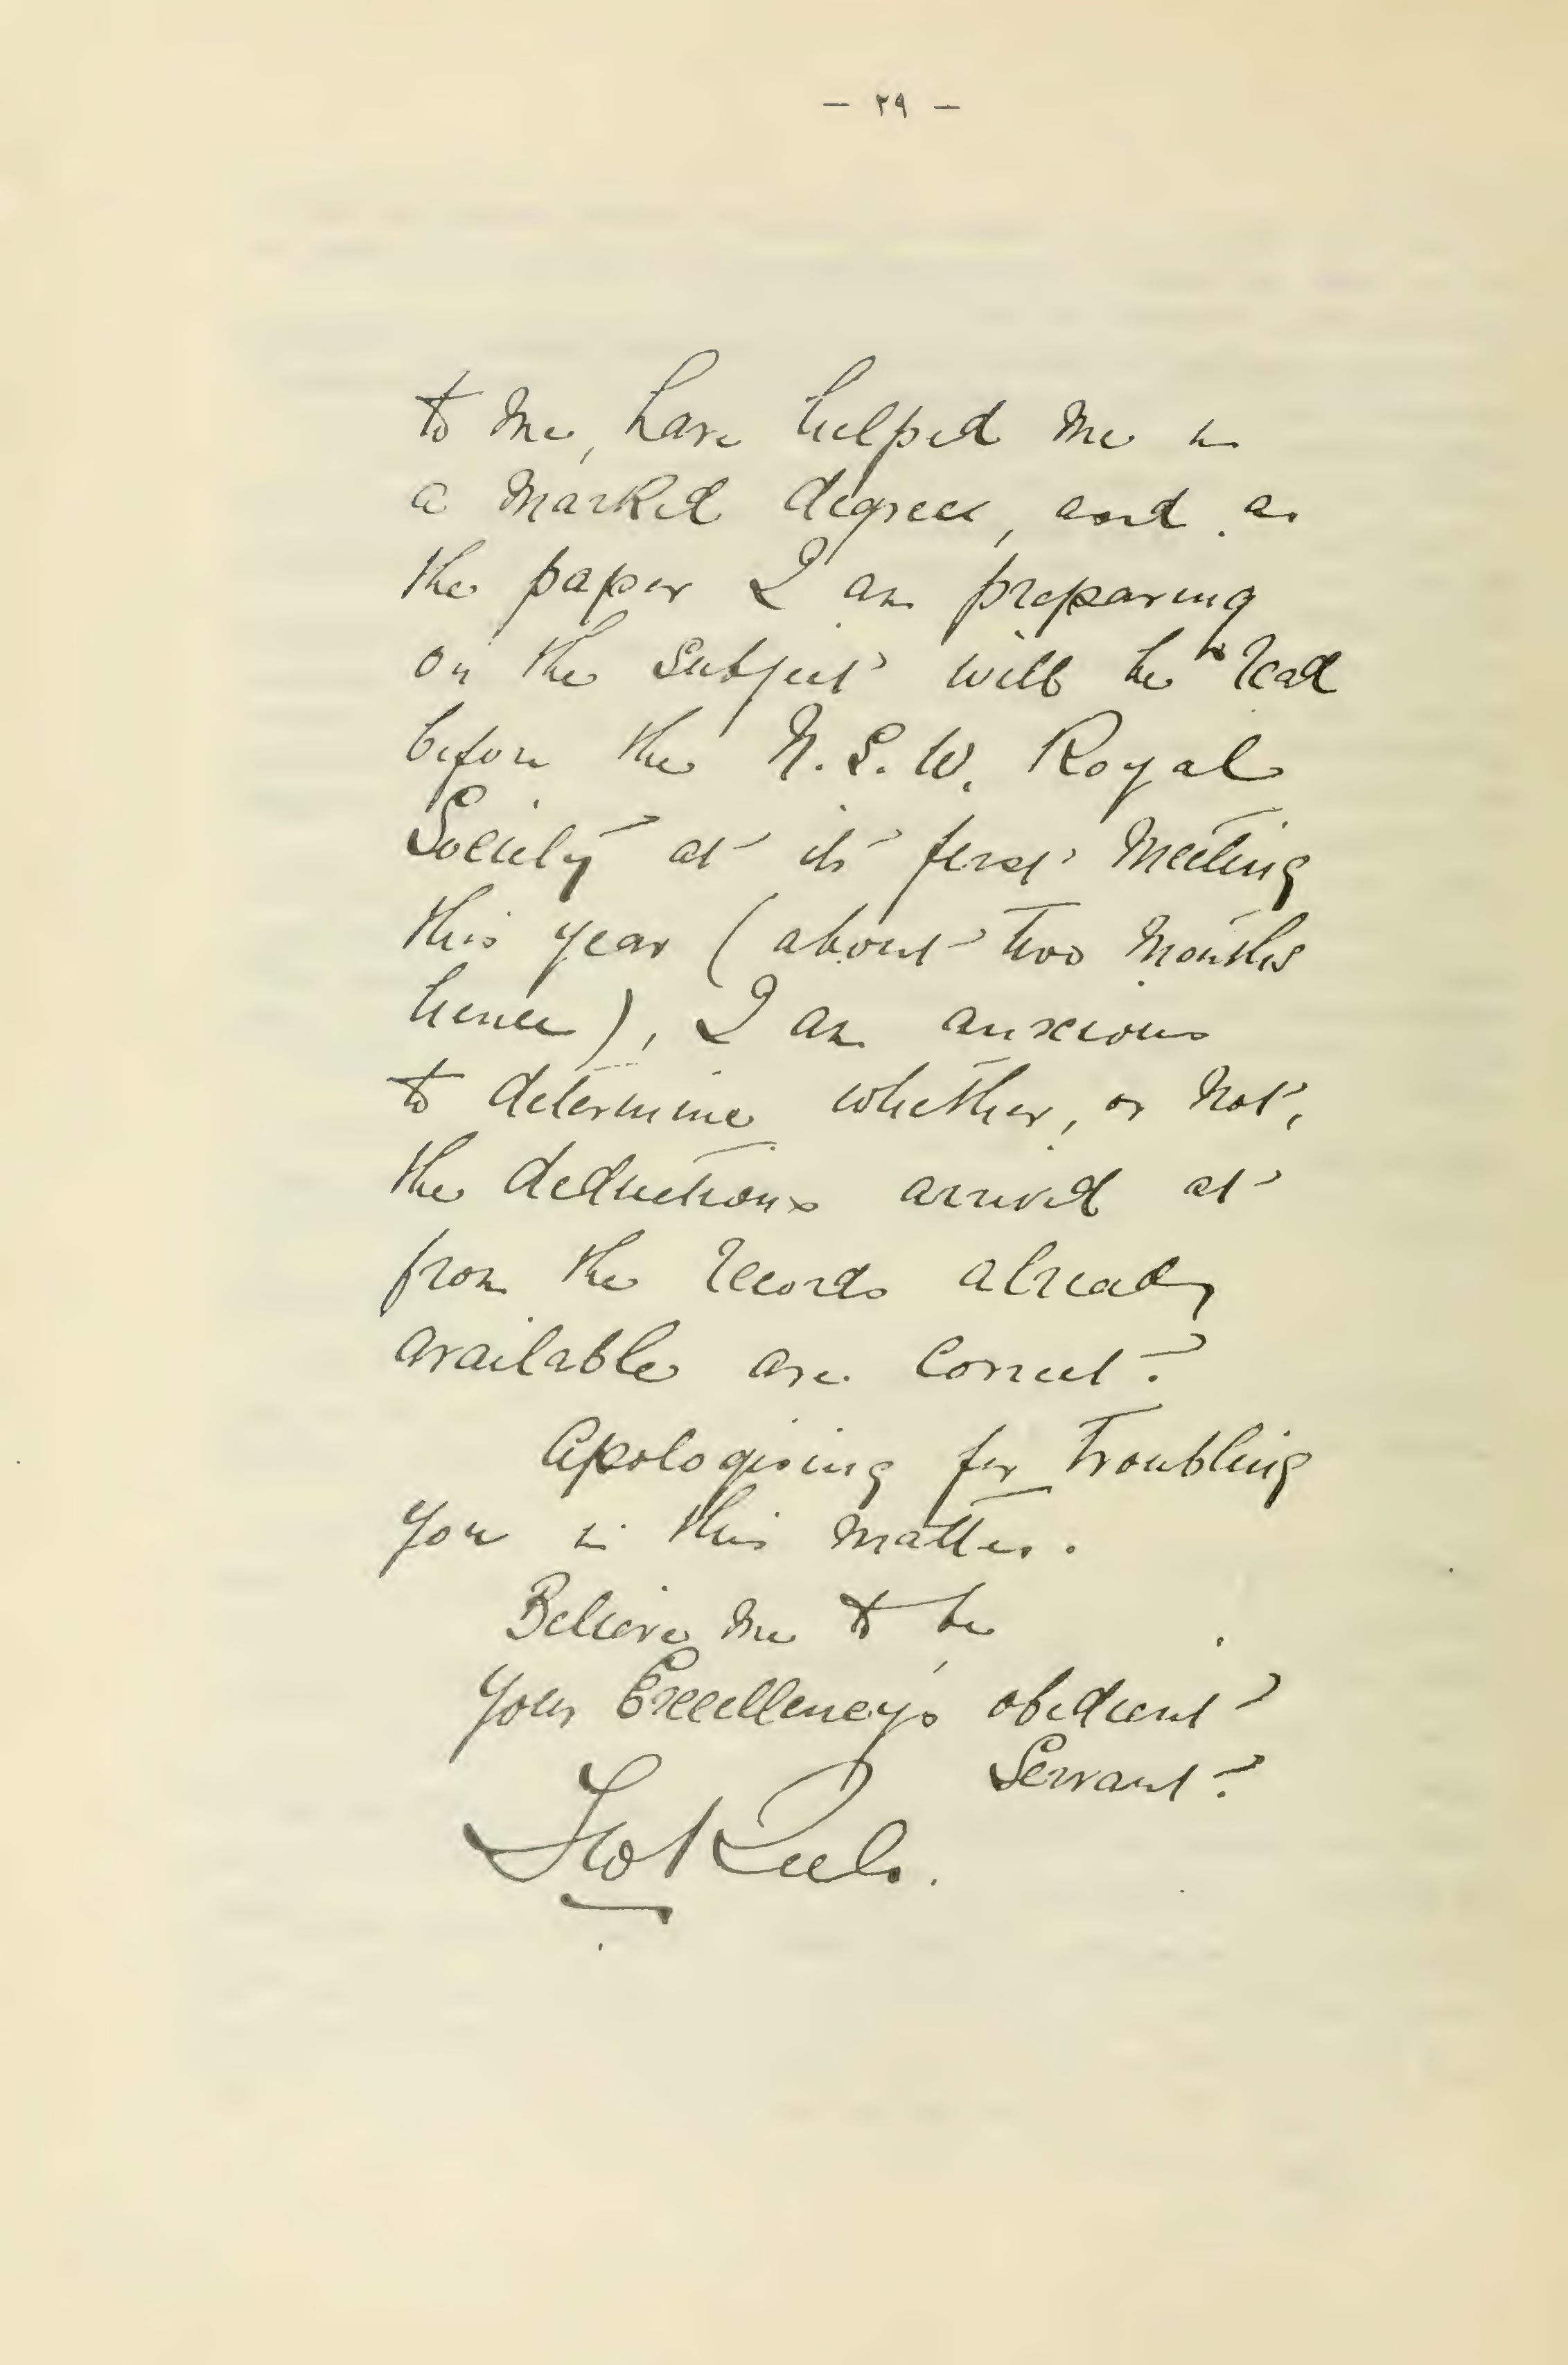 — ٢٩ —
to me, have helped me in
a marked degree, and as
the paper I am preparing
on the subject will be read
before the N. S. W. Royal
Society at its first meeting
this year (about two months
hence), I am anxious
to determine whether, or not,
the deductions arrived at
from the records already
available are correct.
Apologising for troubling
you in this matter.
Believe me to be
Your Excellency's obedient
Servant.